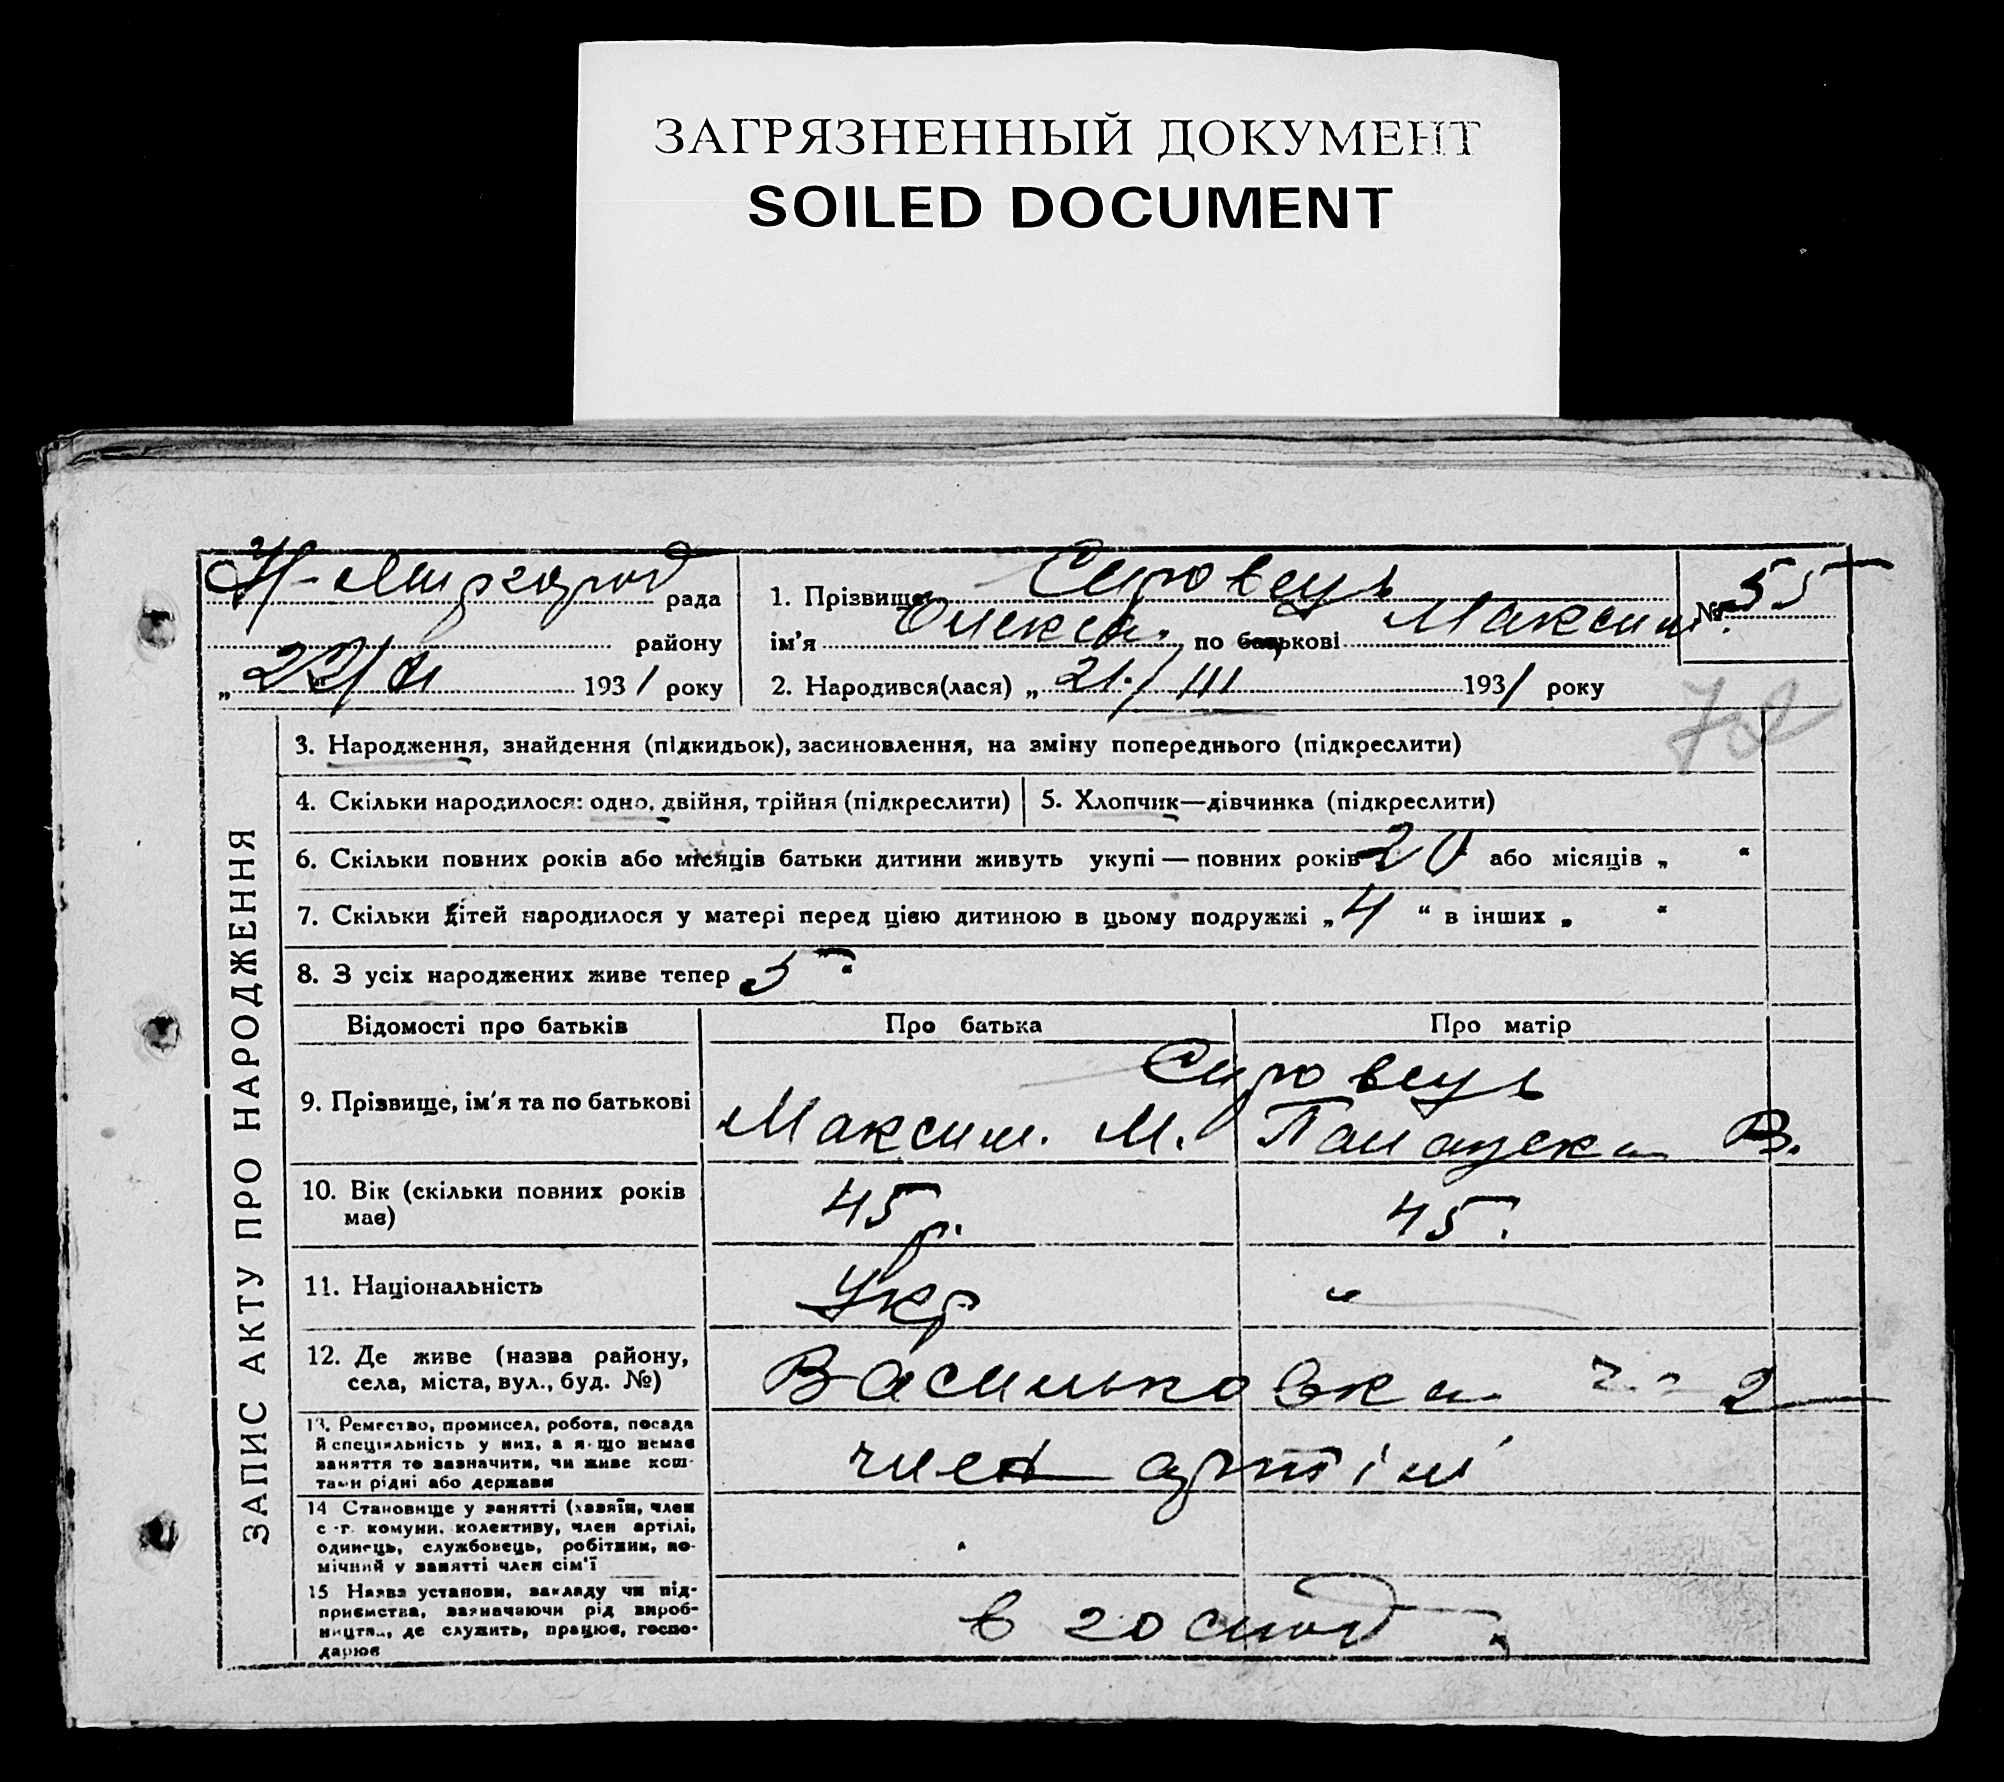 ЗАГРЯЗНЕННЫЙ ДОКУМЕНТ
SOILED DOCUMENT
Н-Миргород рада
району
„ 22/ 193 1 року
1. Прізвище Сировець
ім'я Олекса. по батькові Максим.
№ 55
2. Народився(лася) „ 21./III 193 1 року
72
ЗАПИС АКТУ ПРО НАРОДЖЕННЯ
3. Народження, знайдення (підкидьок), засиновлення, на зміну попереднього (підкреслити)
4. Скільки народилося: одно, двійня, трійня (підкреслити)
5. Хлопчик—дівчинка (підкреслити)
6. Скільки повних років або місяців батьки дитини живуть укупі — повних років 20 або місяців „ “
7. Скільки дітей народилося у матері перед цією дитиною в цьому подружжі „ 4 “ в інших „ “
8. З усіх народжених живе тепер „ 5 “
Відомості про батьків
Про батька
Про матір
9. Прізвище, ім'я та по батькові
Сировець
Максим. М.
В.
10. Вік (скільки повних років
має)
45 р.
45.
11. Національність
Укр
“
12. Де живе (назва району,
села, міста, вул., буд. №)
Васильковка 2
13. Ремество, промисел, робота, посада
й спеціяльність у них, а якщо немає
заняття то зазначити, чи живе кош-
тами рідні або держави
член артілі
14 Становище у занятті (хазяїн, член
с.-г. комуни, колективу, член артілі,
одинець, службовець, робітник, по-
мічний у занятті член сім'ї
15 Назва установи, закладу чи під-
приємства, зазначаючи рід вироб-
ництва, де служить, працює, госпо-
дарює
в господ.